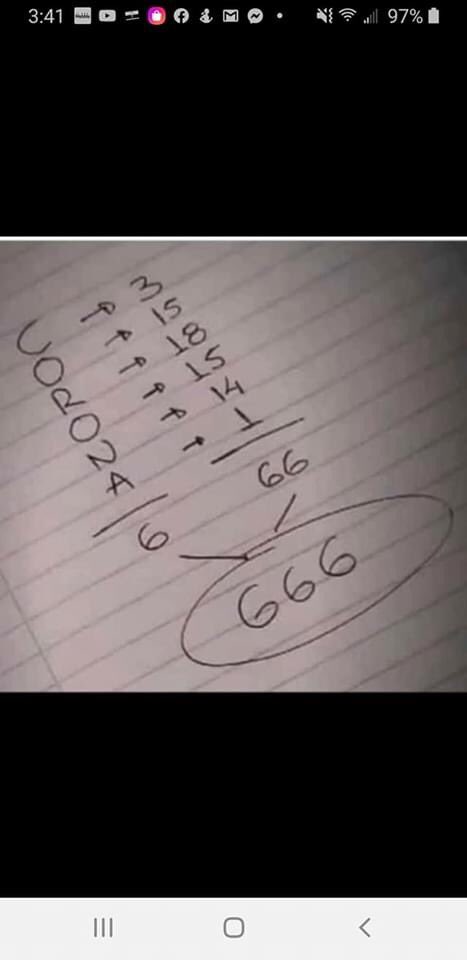 3:41 97%
C 3
O 15
R 18
O 15
N 14
A 1
6 66
666